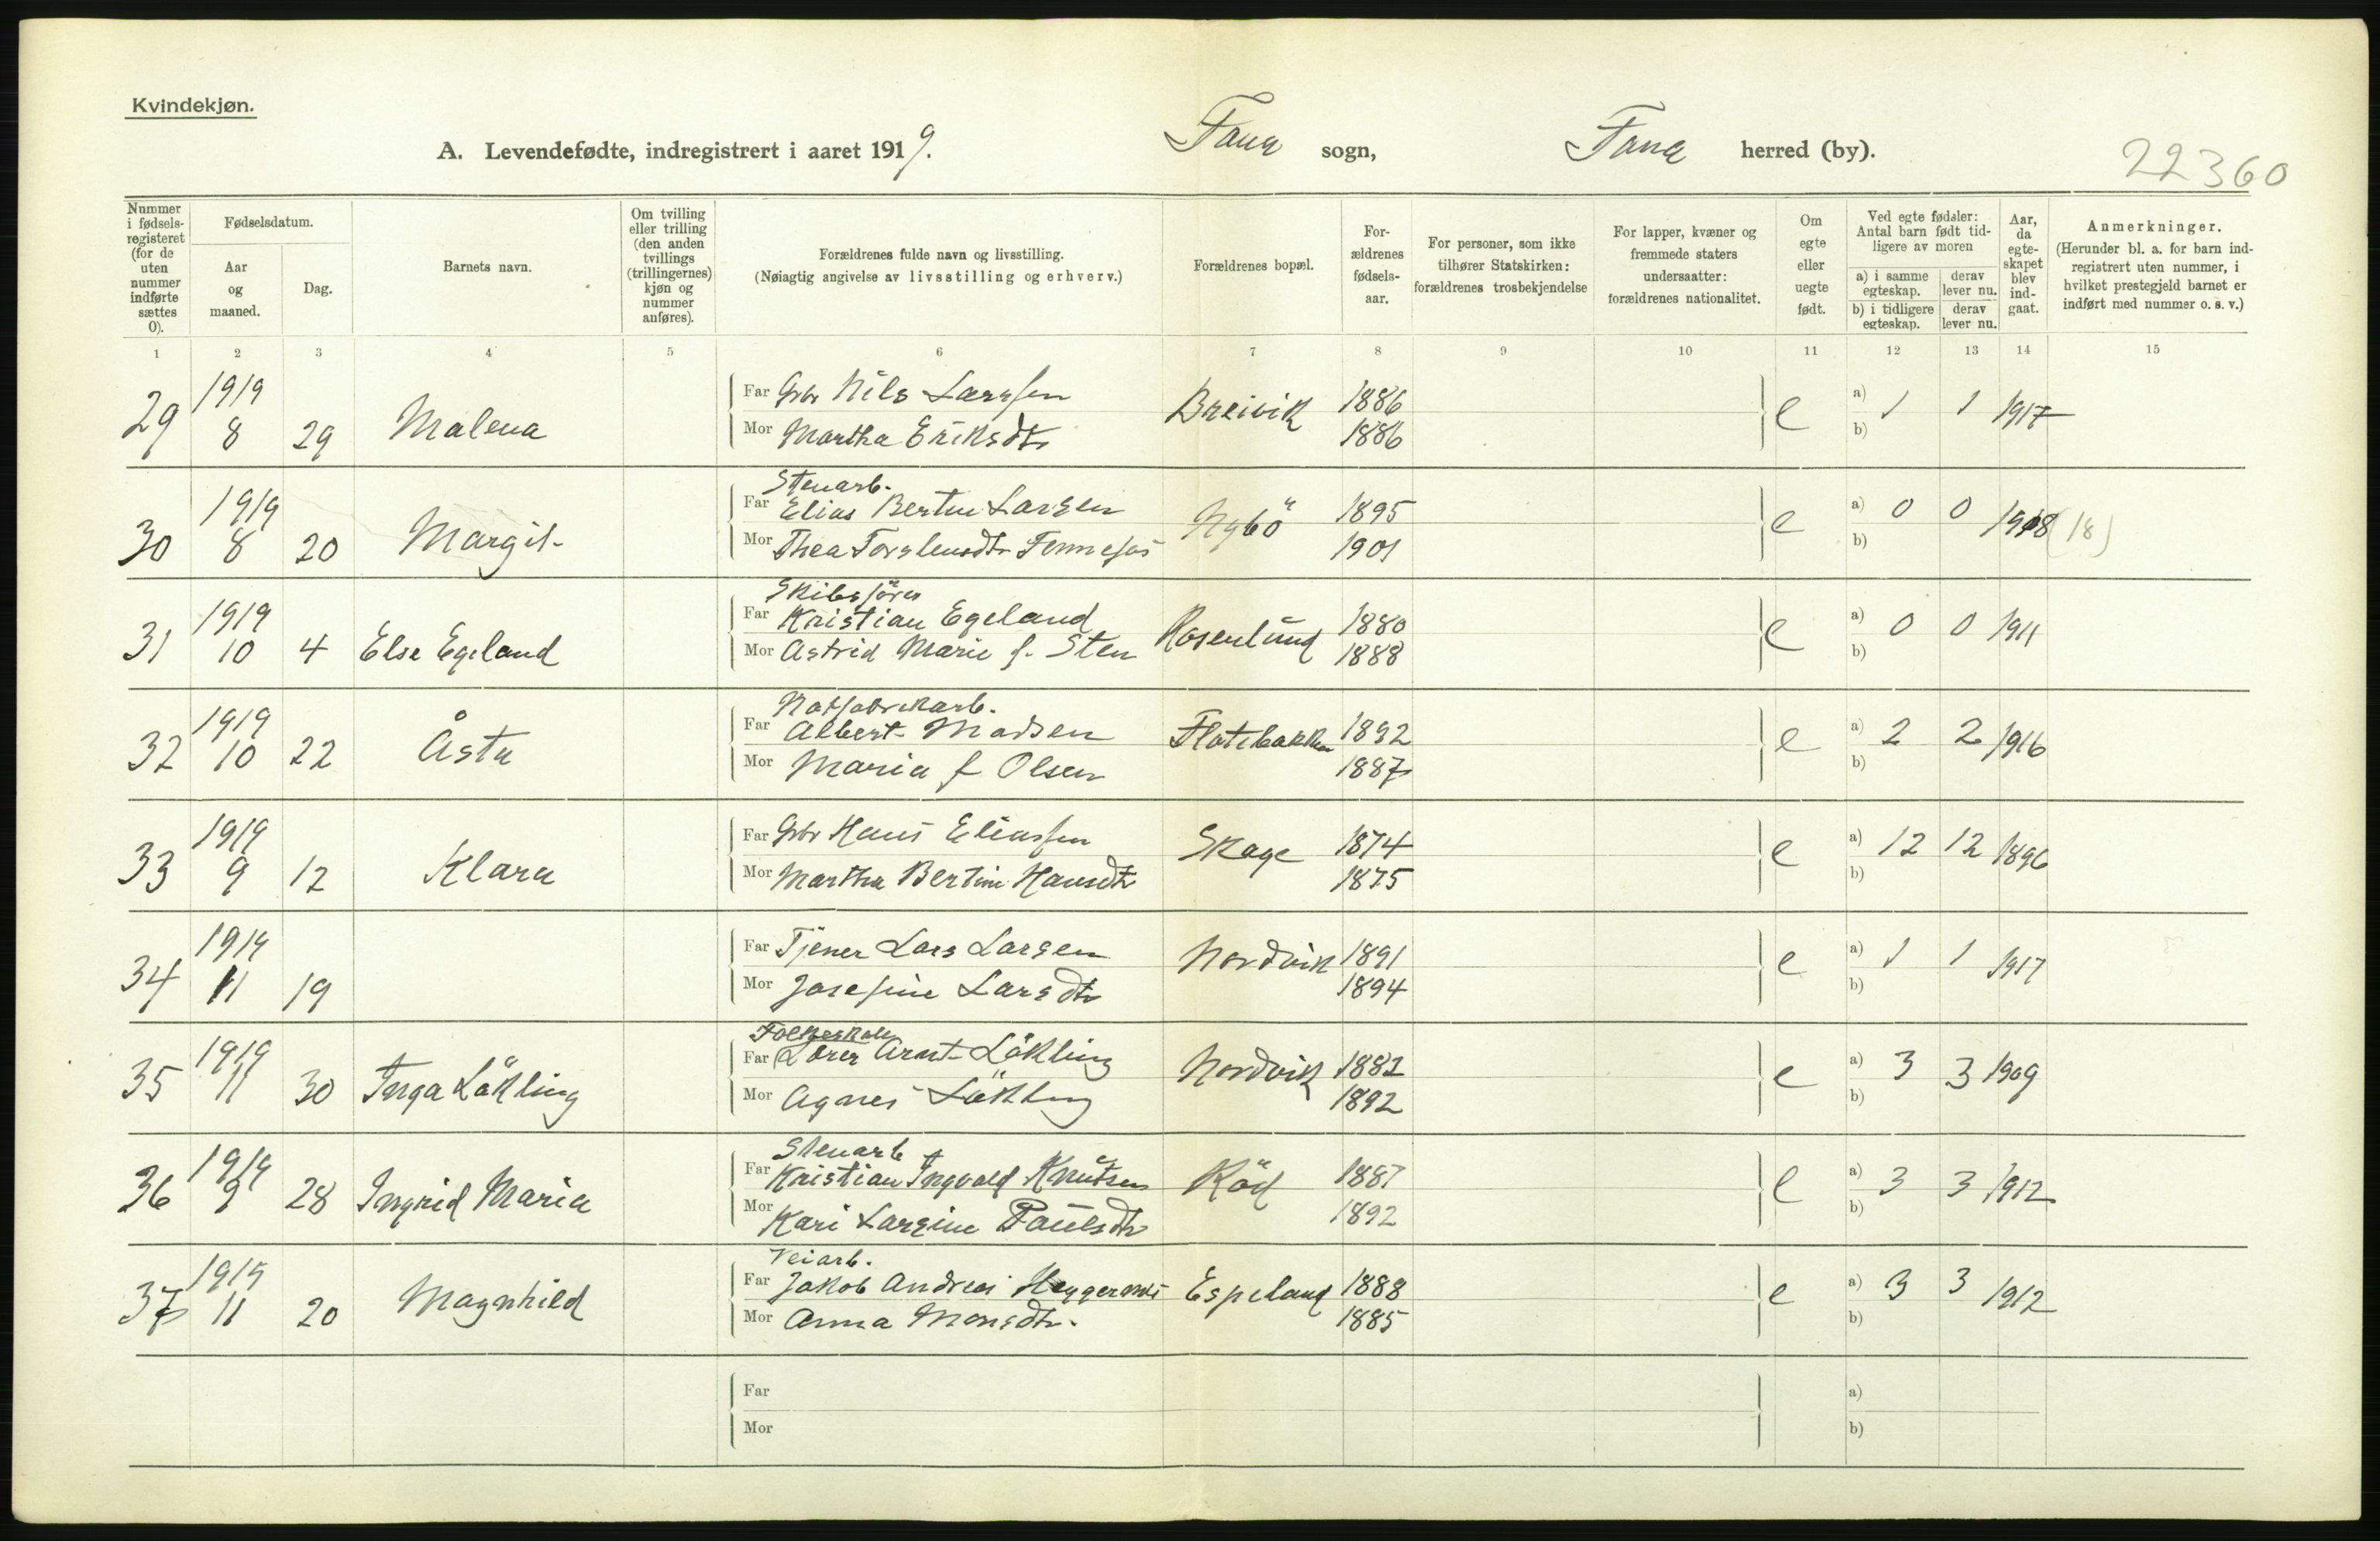 Kvindekjøn.
A. Levendefødte, indregistrert i aaret 1919. Fana sogn, Fana herred (by). 22360
Nummer i fødselsregisteret (for de uten nummer indførte sættes 0).
Fødselsdatum.
Aar og maaned.
Dag.
Barnets navn.
Om tvilling eller trilling (den anden tvillings (trillingernes) kjøn og nummer anføres).
Forældrenes fulde navn og livsstilling.
(Nøiagtig angivelse av livsstilling og erhverv.)
Forældrenes bopæl.
Forældrenes fødselsaar.
For personer, som ikke tilhører Statskirken: forældrenes trosbekjendelse
For lapper, kvæner og fremmede staters undersaatter: forældrenes nationalitet.
Om egte eller uegte født.
Ved egte fødsler: Antal barn født tidligere av moren
a) i samme egteskap. derav lever nu.
b) i tidligere egteskap. derav lever nu.
Aar, da egteskapet blev indgaat.
Anmerkninger.
(Herunder bl. a. for barn indregistrert uten nummer, i hvilket prestegjeld barnet er indført med nummer o. s. v.)
1 2 3 4 5 6 7 8 9 10 11 12 13 14 15
29 1919 8 29 Malena Far Gbr Nils Larssen Breivik 1886 e a) 1 1 1917
Mor Martha Eriksdtr 1886 b)
Stenarb.
30 1919 8 20 Margit Far Elias Bertin Larsen Nybö 1895 e a) 0 0 1918 (18)
Mor Thea 1901 b)
Skibsförer
31 1919 10 4 Else Egeland Far Kristian Egeland Rosenlund 1880 e a) 0 0 1911
Mor Astrid Marie f. Sten 1888 b)
32 1919 10 22 Åsta Far Albert Madsen Flatebakken 1892 e a) 2 2 1916
Mor Maria f Olsen 1887 b)
33 1919 9 12 Klara Far Gbr Hans Eliassen Skage 1874 e a) 12 12 1896
Mor Martha Bertine Hansdtr 1875 b)
34 1919 11 19 Far Tjener Lars Larsen Nordvik 1891 e a) 1 1 1917
Mor Josefine Larsdtr 1894 b)
Folkeskole
35 1919 11 30 Inga Lökling Far Lærer Arnt Lökling Nordvik 1881 e a) 3 3 1909
Mor Agnes Lökling 1892 b)
Stenarb
36 1919 9 28 Ingrid Maria Far Kristian Ingvald Knutsen Röd 1887 e a) 3 3 1912
Mor Kari Larsine Paulsdtr 1892 b)
Veiarb.
37 1919 11 20 Magnhild Far Jakob Andreas Espeland 1888 e a) 3 3 1912
Mor Anna Monsdtr. 1885 b)
Far a)
Mor b)